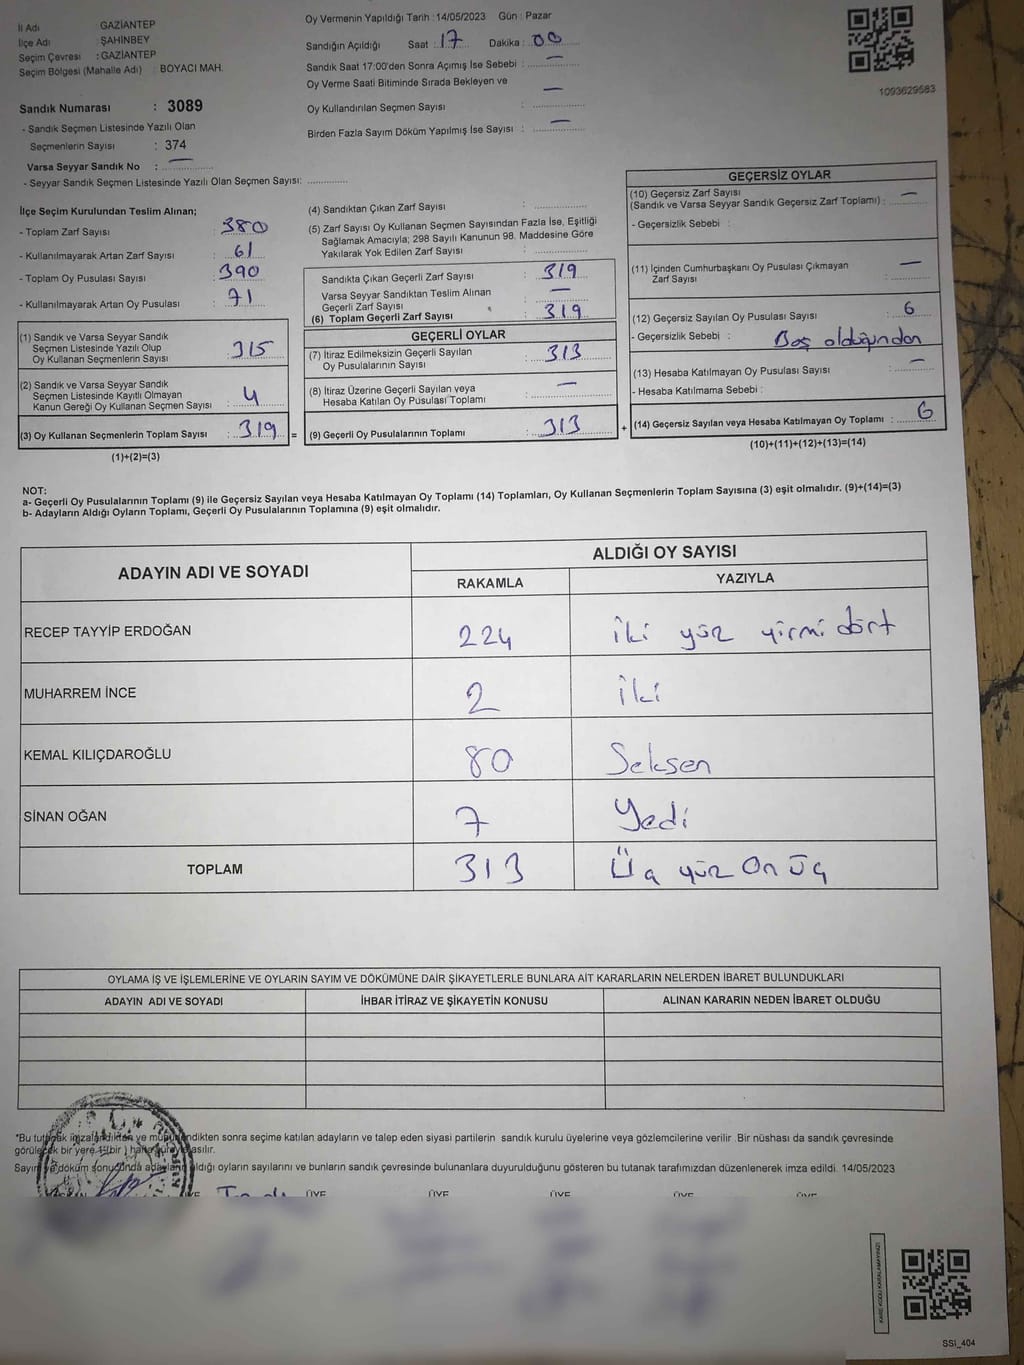 İl Adı : GAZİANTEP
İlçe Adı : ŞAHİNBEY
Seçim Çevresi : GAZİANTEP
Seçim Bölgesi (Mahalle Adı) : BOYACI MAH.
Sandık Numarası : 3089
- Sandık Seçmen Listesinde Yazılı Olan
Seçmenlerin Sayısı : 374
Varsa Seyyar Sandık No : —
- Seyyar Sandık Seçmen Listesinde Yazılı Olan Seçmen Sayısı: ..............
Oy Vermenin Yapıldığı Tarih : 14/05/2023 Gün : Pazar
Sandığın Açıldığı Saat : 17 Dakika : 00
Sandık Saat 17:00'den Sonra Açımış İse Sebebi : —
Oy Verme Saati Bitiminde Sırada Bekleyen ve
Oy Kullandırılan Seçmen Sayısı : —
Birden Fazla Sayım Döküm Yapılmış İse Sayısı : —
1093629583
İlçe Seçim Kurulundan Teslim Alınan;
- Toplam Zarf Sayısı : 380
- Kullanılmayarak Artan Zarf Sayısı : 61
- Toplam Oy Pusulası Sayısı : 390
- Kullanılmayarak Artan Oy Pusulası : 71
(1) Sandık ve Varsa Seyyar Sandık
Seçmen Listesinde Yazılı Olup
Oy Kullanan Seçmenlerin Sayısı : 315
(2) Sandık ve Varsa Seyyar Sandık
Seçmen Listesinde Kayıtlı Olmayan
Kanun Gereği Oy Kullanan Seçmen Sayısı : 4
(3) Oy Kullanan Seçmenlerin Toplam Sayısı : 319 =
(1)+(2)=(3)
(4) Sandıktan Çıkan Zarf Sayısı :
(5) Zarf Sayısı Oy Kullanan Seçmen Sayısından Fazla İse, Eşitliği
Sağlamak Amacıyla; 298 Sayılı Kanunun 98. Maddesine Göre
Yakılarak Yok Edilen Zarf Sayısı :
Sandıkta Çıkan Geçerli Zarf Sayısı : 319
Varsa Seyyar Sandıktan Teslim Alınan
Geçerli Zarf Sayısı : —
(6) Toplam Geçerli Zarf Sayısı : 319
GEÇERLİ OYLAR
(7) İtiraz Edilmeksizin Geçerli Sayılan
Oy Pusulalarının Sayısı : 313
(8) İtiraz Üzerine Geçerli Sayılan veya
Hesaba Katılan Oy Pusulası Toplamı : —
(9) Geçerli Oy Pusulalarının Toplamı : 313 +
GEÇERSİZ OYLAR
(10) Geçersiz Zarf Sayısı
(Sandık ve Varsa Seyyar Sandık Geçersiz Zarf Toplamı) : —
- Geçersizlik Sebebi :
(11) İçinden Cumhurbaşkanı Oy Pusulası Çıkmayan
Zarf Sayısı : —
(12) Geçersiz Sayılan Oy Pusulası Sayısı : 6
- Geçersizlik Sebebi : Boş olduğundan
(13) Hesaba Katılmayan Oy Pusulası Sayısı : —
- Hesaba Katılmama Sebebi :
(14) Geçersiz Sayılan veya Hesaba Katılmayan Oy Toplamı : 6
(10)+(11)+(12)+(13)=(14)
NOT:
a- Geçerli Oy Pusulalarının Toplamı (9) ile Geçersiz Sayılan veya Hesaba Katılmayan Oy Toplamı (14) Toplamları, Oy Kullanan Seçmenlerin Toplam Sayısına (3) eşit olmalıdır. (9)+(14)=(3)
b- Adayların Aldığı Oyların Toplamı, Geçerli Oy Pusulalarının Toplamına (9) eşit olmalıdır.
ADAYIN ADI VE SOYADI
ALDIĞI OY SAYISI
RAKAMLA YAZIYLA
RECEP TAYYİP ERDOĞAN 224 iki yüz yirmi dört
MUHARREM İNCE 2 iki
KEMAL KILIÇDAROĞLU 80 Seksen
SİNAN OĞAN 7 Yedi
TOPLAM 313 Üç yüz On Üç
OYLAMA İŞ VE İŞLEMLERİNE VE OYLARIN SAYIM VE DÖKÜMÜNE DAİR ŞİKAYETLERLE BUNLARA AİT KARARLARIN NELERDEN İBARET BULUNDUKLARI
ADAYIN ADI VE SOYADI İHBAR İTİRAZ VE ŞİKAYETİN KONUSU ALINAN KARARIN NEDEN İBARET OLDUĞU
*Bu tutanak imzalandıktan ve mühürlendikten sonra seçime katılan adayların ve talep eden siyasi partilerin sandık kurulu üyelerine veya gözlemcilerine verilir. Bir nüshası da sandık çevresinde
görülecek bir yere 1 (bir) hafta süreyle asılır.
Sayım ve döküm sonucunda adayların aldığı oyların sayılarını ve bunların sandık çevresinde bulunanlara duyurulduğunu gösteren bu tutanak tarafımızdan düzenlenerek imza edildi. 14/05/2023
ÜYE ÜYE ÜYE ÜYE ÜYE
KARE KODU KARALAMAYINIZ!
SSİ_404